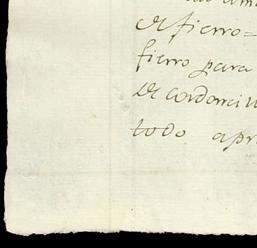 de fierro=
fierro para
de cordoci
todo apr